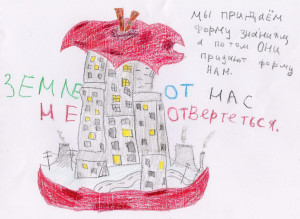 МЫ ПРИДАЁМ
ФОРМУ ЗНАНИЯМ,
А ПОТОМ ОНИ
ПРИДАЮТ ФОРМУ
НАМ.
ЗЕМЛЕ ОТ НАС
НЕ ОТВЕРТЕТЬСЯ.